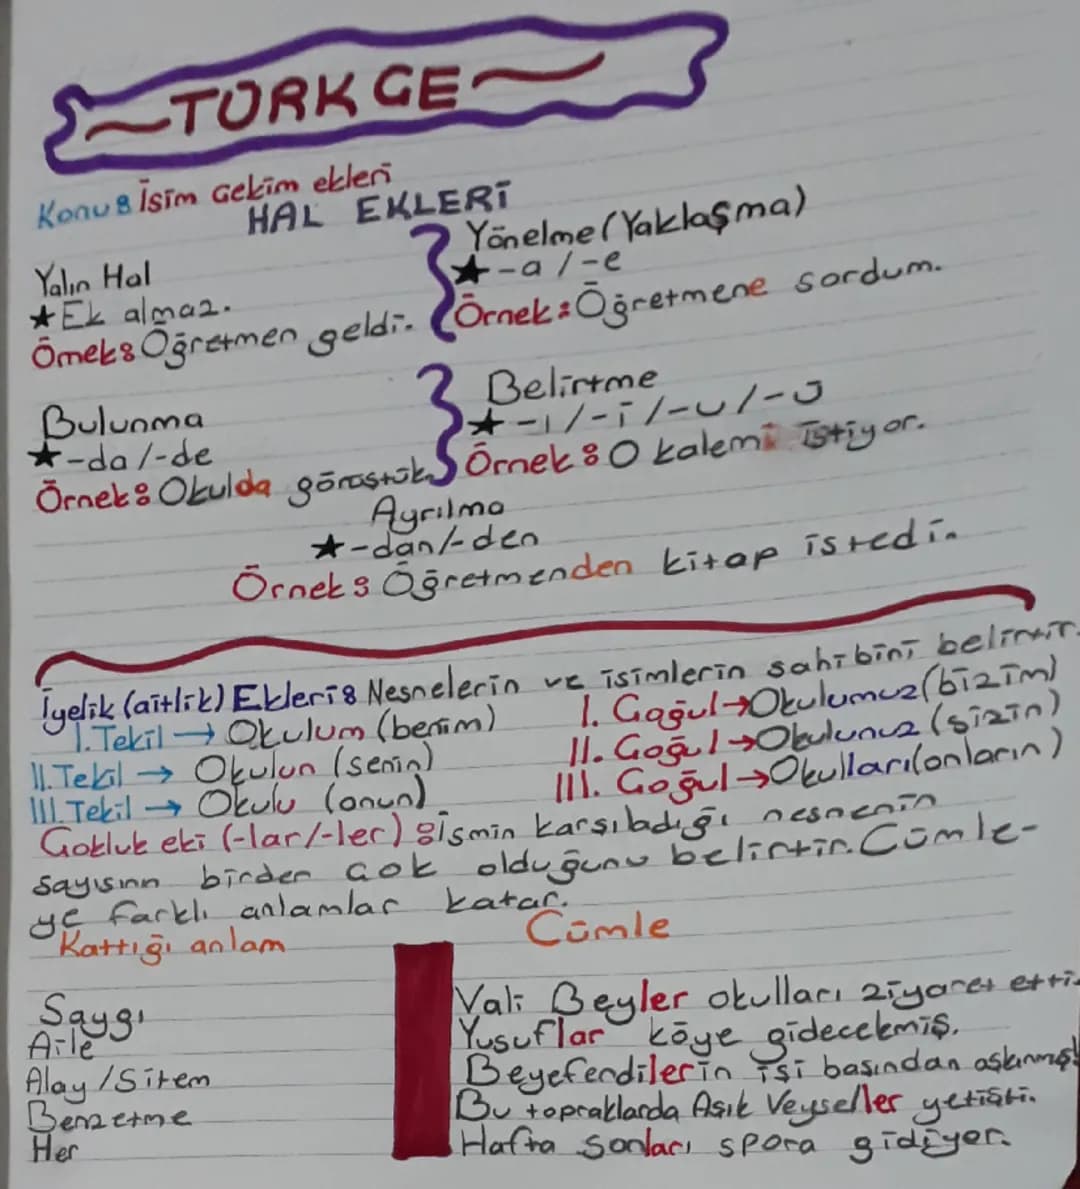 TÜRKÇE
Konu: İsim Çekim ekleri
HAL EKLERİ
Yalın Hal
★Ek almaz.
Örnek: Öğretmen geldi.
Yönelme (Yaklaşma)
★-a /-e
Örnek: Öğretmene sordum.
Bulunma
★-da/-de
Örnek: Okulda görüştük.
Belirtme
★-ı/-i/-u/-ü
Örnek: O kalemi istiyor.
Ayrılma
★-dan/-den
Örnek: Öğretmenden kitap istedi.
İyelik (aitlik) Ekleri: Nesnelerin ve isimlerin sahibini belirtir.
I. Tekil → Okulum (benim)
II. Tekil → Okulun (senin)
III. Tekil → Okulu (onun)
I. Çoğul → Okulumuz (bizim)
II. Çoğul → Okulunuz (sizin)
III. Çoğul → Okulları (onların)
Çokluk eki (-lar/-ler): İsmin karşıladığı nesnenin
sayısının birden çok olduğunu belirtir. Cümle-
ye farklı anlamlar katar.
Kattığı anlam
Cümle
Saygı
Aile
Alay/Sitem
Benzetme
Her
Vali Beyler okulları ziyaret etti.
Yusuflar köye gidecekmiş.
Beyefendilerin işi başından aşkınmış!
Bu topraklarda Aşık Veyseller yetişti.
Hafta sonları spora gidiyor.